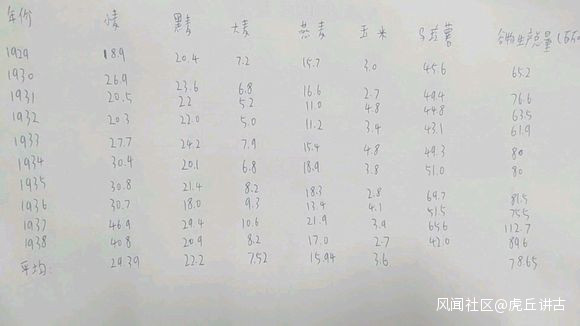 年份 小麦 黑麦 大麦 燕麦 玉米 马铃薯 谷物生产总量
1929 18.9 20.4 7.2 15.7 3.0 45.6 65.2
1930 26.9 23.6 6.8 16.6 2.7 49.4 76.6
1931 20.5 22 5.2 11.0 4.8 44.8 63.5
1932 20.3 22.0 5.0 11.2 3.4 43.1 61.9
1933 27.7 24.2 7.9 15.4 4.8 49.3 80
1934 30.4 20.1 6.8 18.9 3.8 51.0 80
1935 30.8 21.4 8.2 18.3 2.8 69.7 81.5
1936 30.7 18.0 9.3 13.4 4.1 51.5 75.5
1937 46.9 29.4 10.6 21.9 3.9 65.6 112.7
1938 40.8 20.9 8.2 17.0 2.7 42.0 89.6
平均: 29.39 22.2 7.52 15.94 3.6 78.65
风闻社区@虎丘讲古